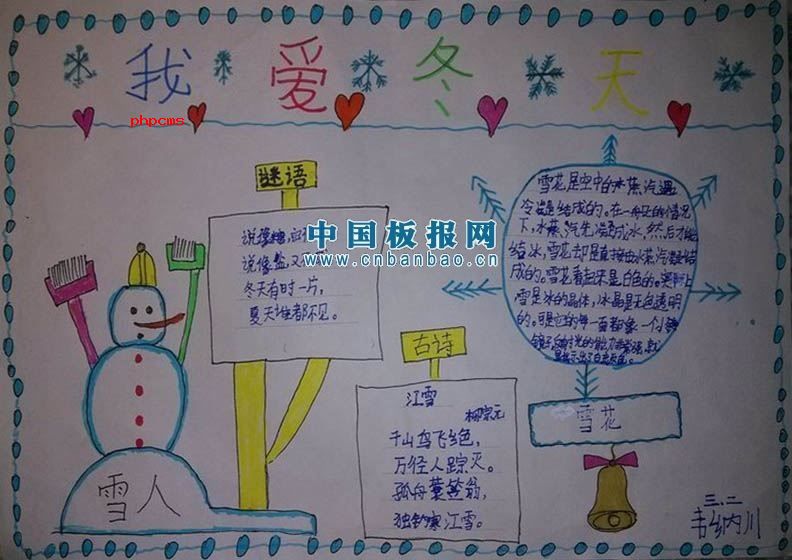 我爱冬天
phpcms
谜语
说像糖,白
说像盐又
冬天有时一片,
夏天谁都不见。
中国板报网
www.cnbanbao.cn
雪花是空中的水蒸汽遇
冷凝结成的。在一般的情况
下,水蒸汽先凝成水,然后才能
结冰,雪花却是直接由水蒸汽凝结
成的。雪花看起来是白色的。实际上
雪是冰的晶体,冰晶是无色透明
的。可是它的每一面都像一个小
雪花
古诗
江雪
柳宗元
千山鸟飞绝,
万径人踪灭。
孤舟蓑笠翁,
独钓寒江雪。
雪人
三.二